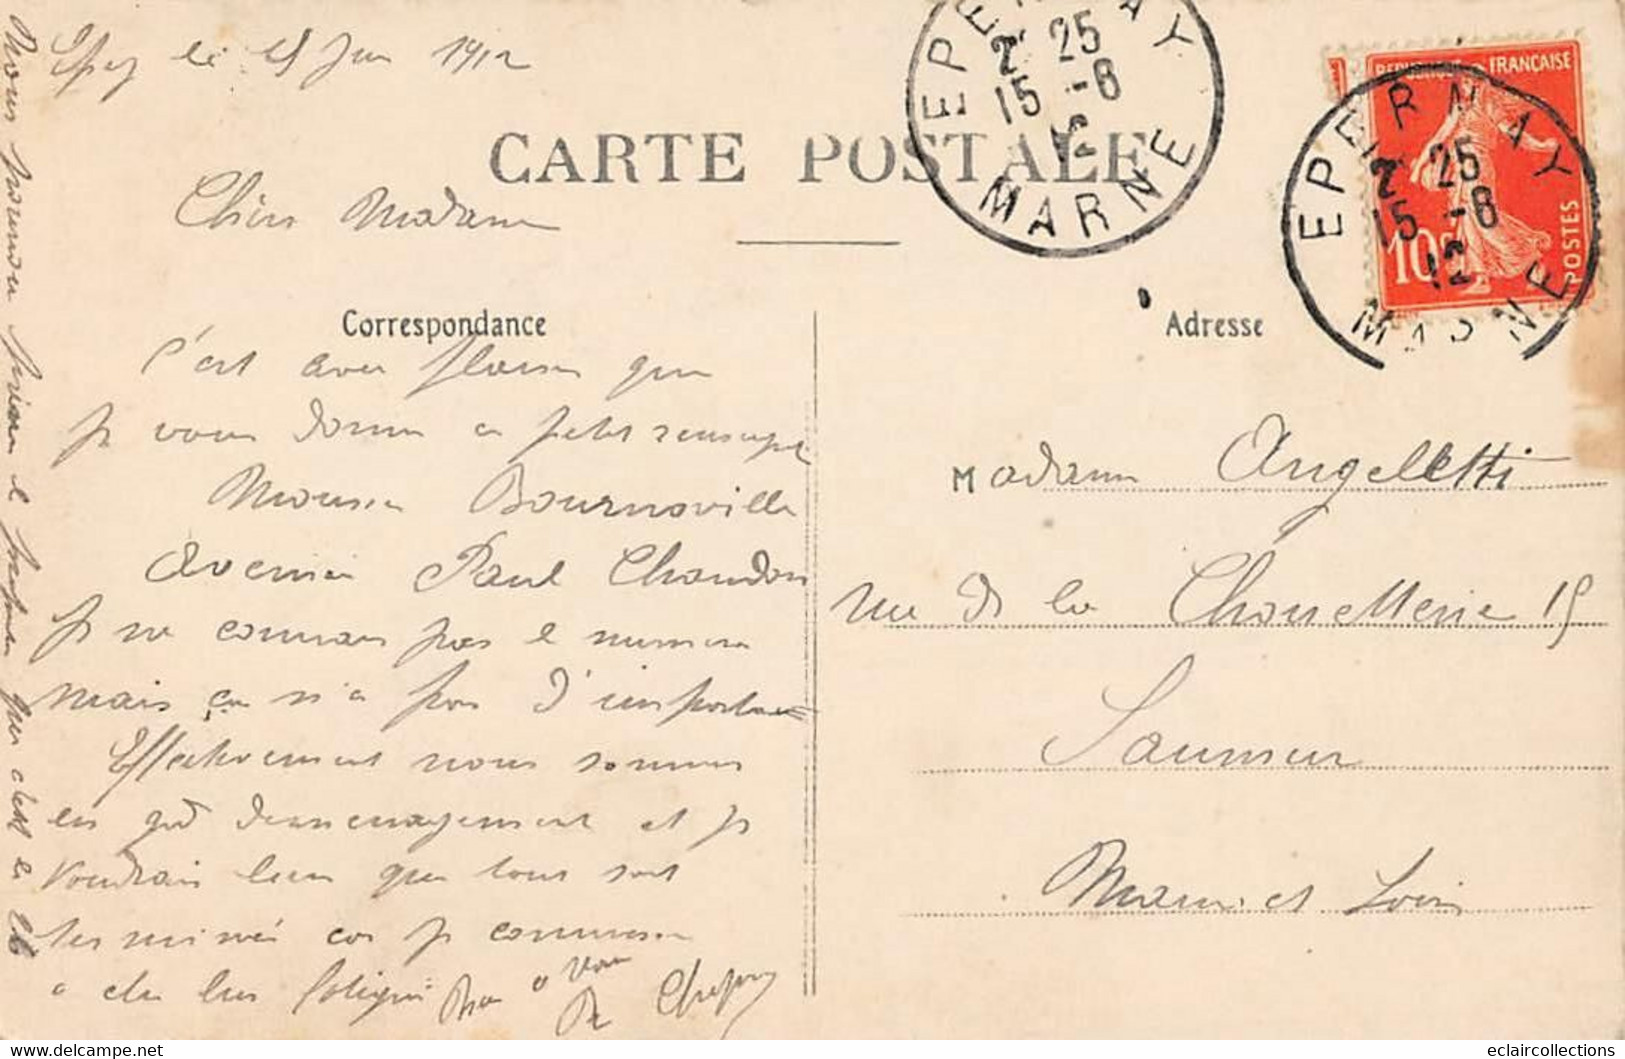 Epy le 15 Juin 1912
CARTE POSTALE
Chère Madame
Correspondance
c'est avec plaisir que
je vous donne ce petit renseigt
Monsieur Bournoville
Avenue Paul Chandon
je ne connais pas le numéro
mais ça n'a pas d'importance
Effectivement nous sommes
en gd demenagement et je
voudrais bien que tout soit
terminé car je commence
a etre bien fatigué
Bien a vous
Nous pouvons
que c'est le
EPERNAY
2 25
15 -6
12
MARNE
REPUBLIQUE FRANÇAISE
POSTES
10c
EPERNAY
2 25
15 -6
12
MARNE
Adresse
Madame Angeletti
rue de la Chouetterie 15
Saumur
Maine et Loire
delcampe.net
eclaircollections